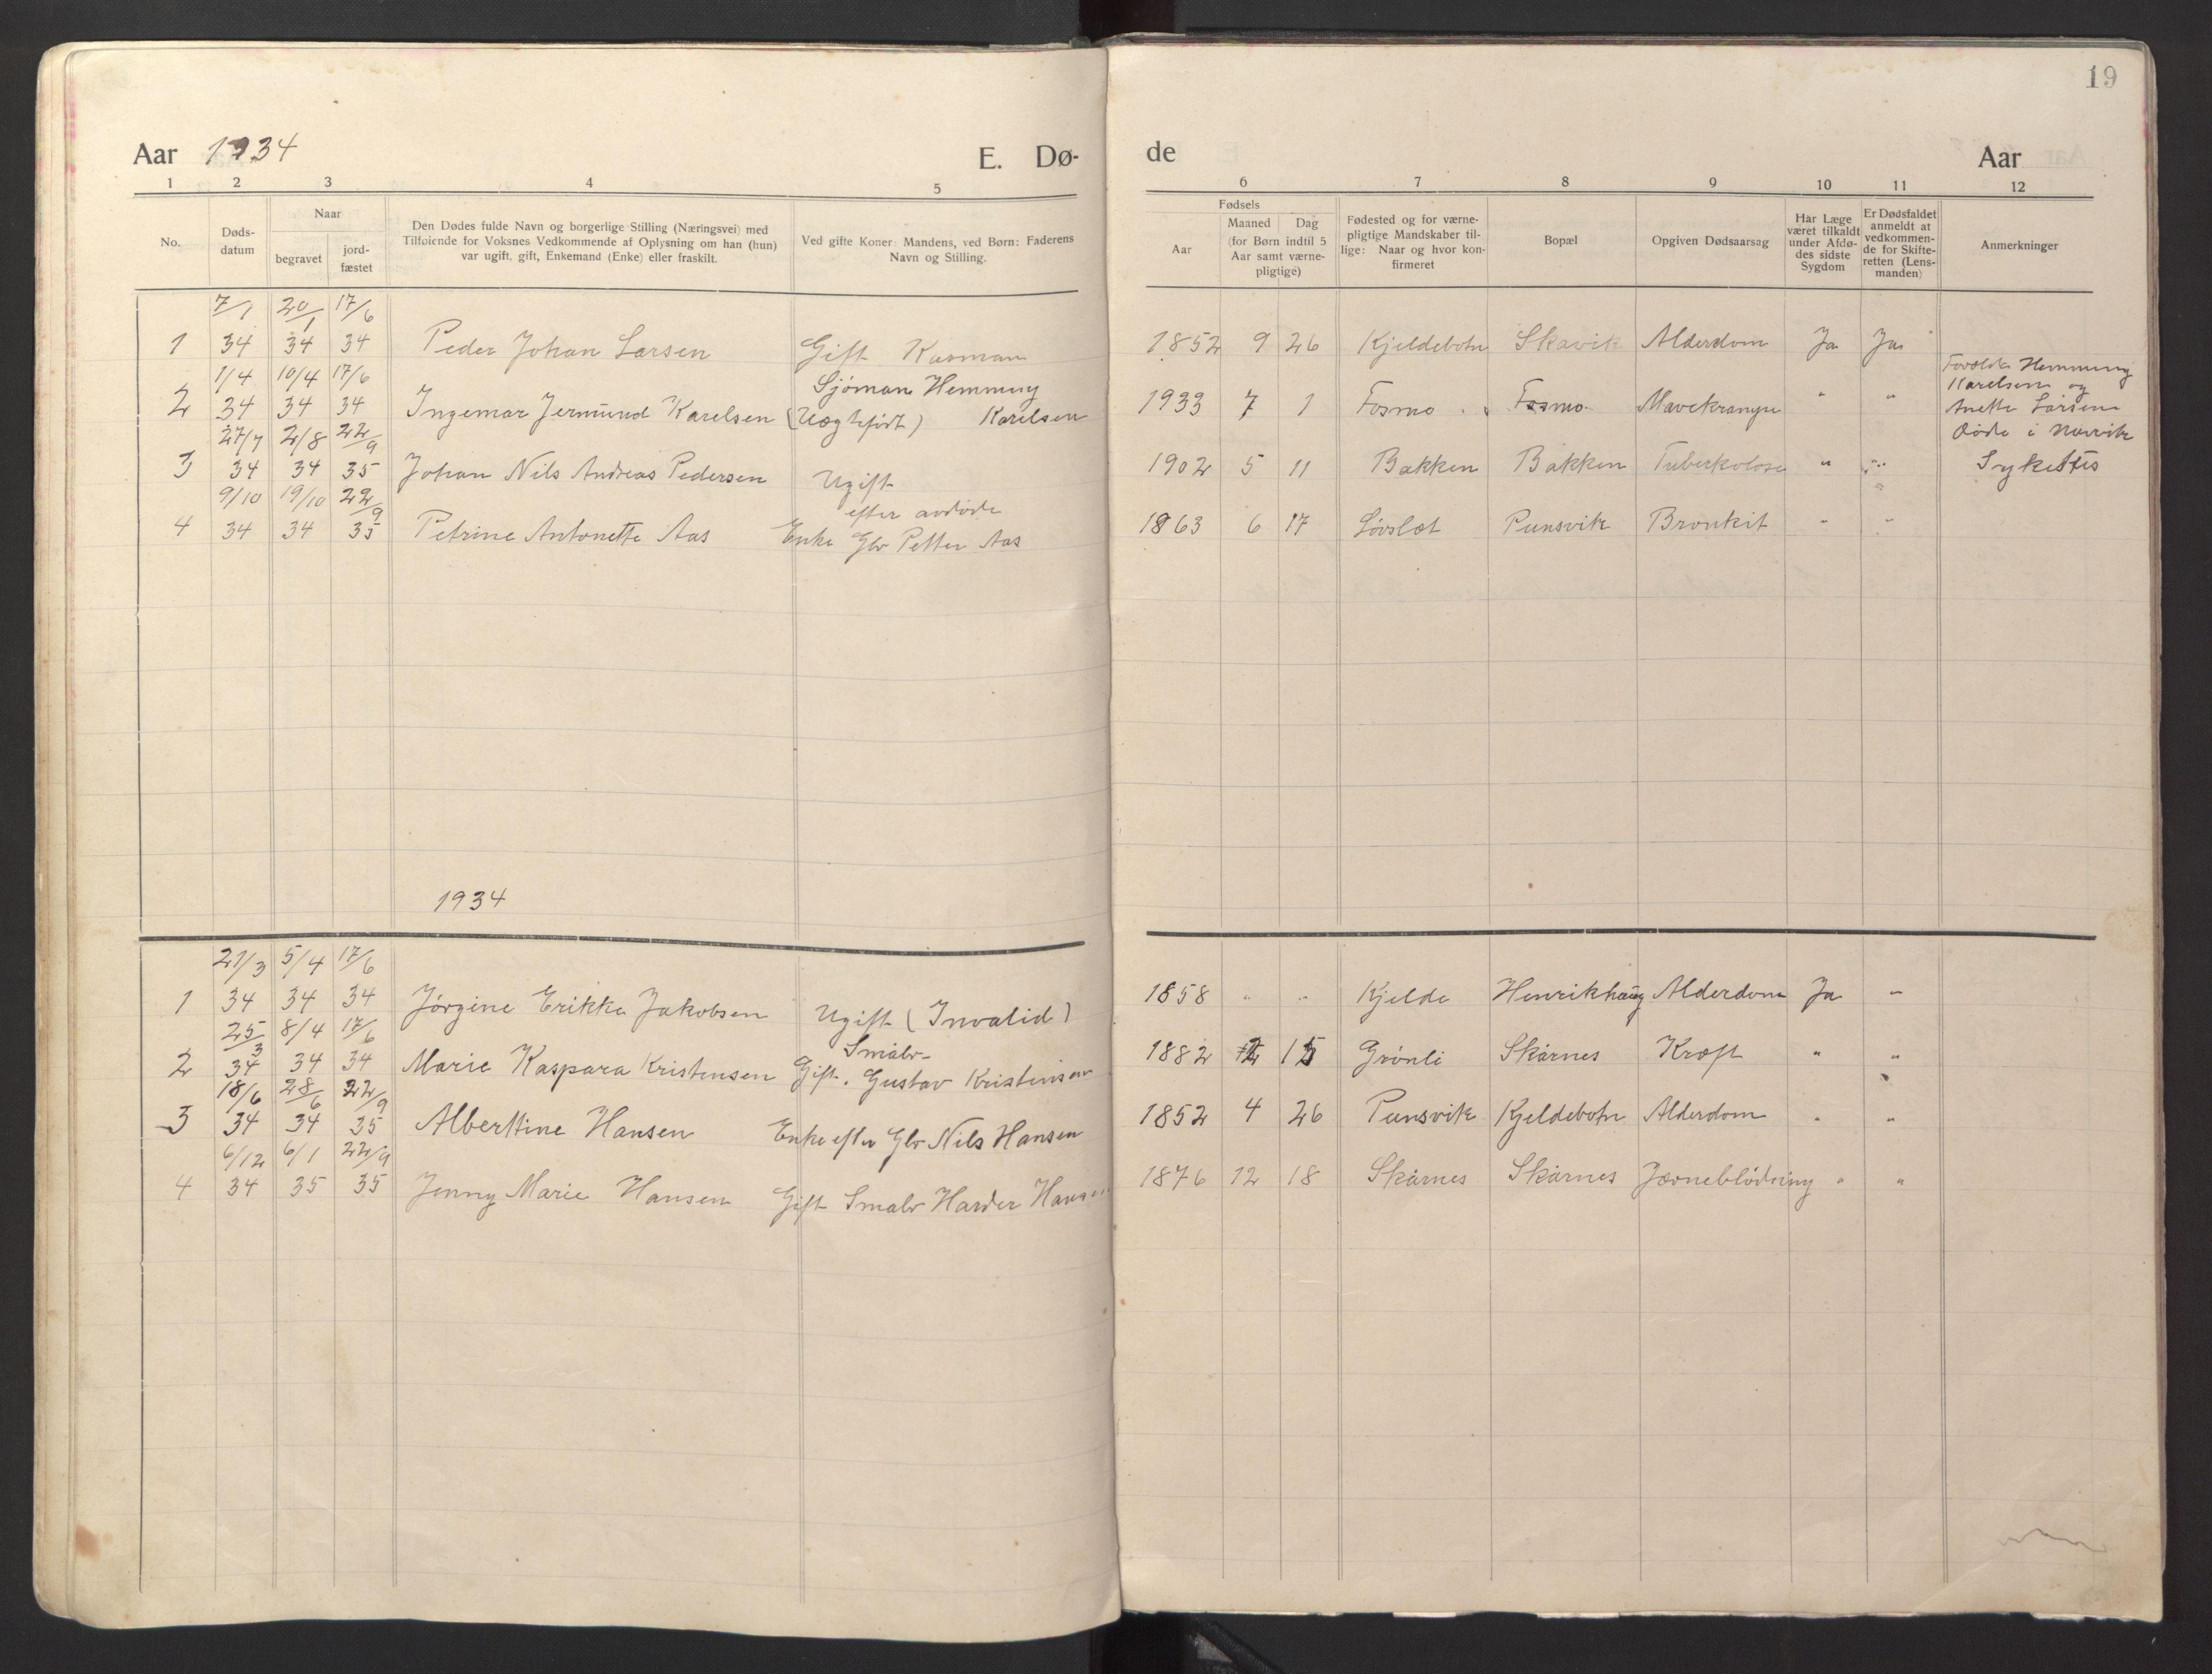 19
Aar 1934 E. Dø-de Aar
1 2 3 4 5 6 7 8 9 10 11 12
No.
Døds-
datum
Naar
begravet
jord-
fæstet
Den Dødes fulde Navn og borgerlige Stilling (Næringsvei) med
Tilføiende for Voksnes Vedkommende af Oplysning om han (hun)
var ugift, gift, Enkemand (Enke) eller fraskilt.
Ved gifte Koner: Mandens, ved Børn: Faderens
Navn og Stilling.
Fødsels
Aar
Maaned Dag
(for Børn indtil 5
Aar samt værne-
pligtige)
Fødested og for værne-
pligtige Mandskaber til-
lige: Naar og hvor kon-
firmeret
Bopæl
Opgiven Dødsaarsag
Har Læge
været tilkaldt
under Afdø-
des sidste
Sygdom
Er Dødsfaldet
anmeldt at
vedkommen-
de for Skifte-
retten (Lens-
manden)
Anmerkninger
7/1 20/1 17/6
1 34 34 34 Peder Johan Larsen Gift Kaarmann 1852 9 26 Kjeldebotn Skavik Alderdom Ja Ja
1/4 10/4 17/6 Sjømann Hemming
2 34 34 34 Ingemar Jermund Karelsen (Uægtefødt) Karelsen 1933 7 1 Fosmo Fosmo Mavekrampe " "
Foreldre Hemming
Karelsen og
Anette Larsen
døde i Narvik
Sykehus
27/7 2/8 22/9
3 34 34 35 Johan Nils Andreas Pedersen Ugift 1902 5 11 Bakken Bakken Tuberkolose " "
9/10 19/10 22/9 efter avdøde
4 34 34 35 Petrine Antonette Aas Enke Gbr Petter Aas 1863 6 17 Løvslet Punsvik Bronkit " "
1934
21/3 5/4 17/6
1 34 34 34 Jørgine Erikke Jakobsen Ugift (Invalid) 1858 " " Kjelde Henrikhaug Alderdom Ja "
25/3 8/4 17/6 Småbr-
2 34 34 34 Marie Kaspara Kristensen Gift. Gustav Kristensen 1882 2 15 Grønli Skårnes Kræft " "
18/6 28/6 22/9
3 34 34 35 Alberttine Hansen Enke efter Gbr Nils Hansen 1852 4 26 Punsvik Kjeldebotn Alderdom " "
6/12 6/1 22/9
4 34 35 35 Jenny Marie Hansen Gift Småbr Harder Hansen 1876 12 18 Skårnes Skårnes Jærneblødning " "